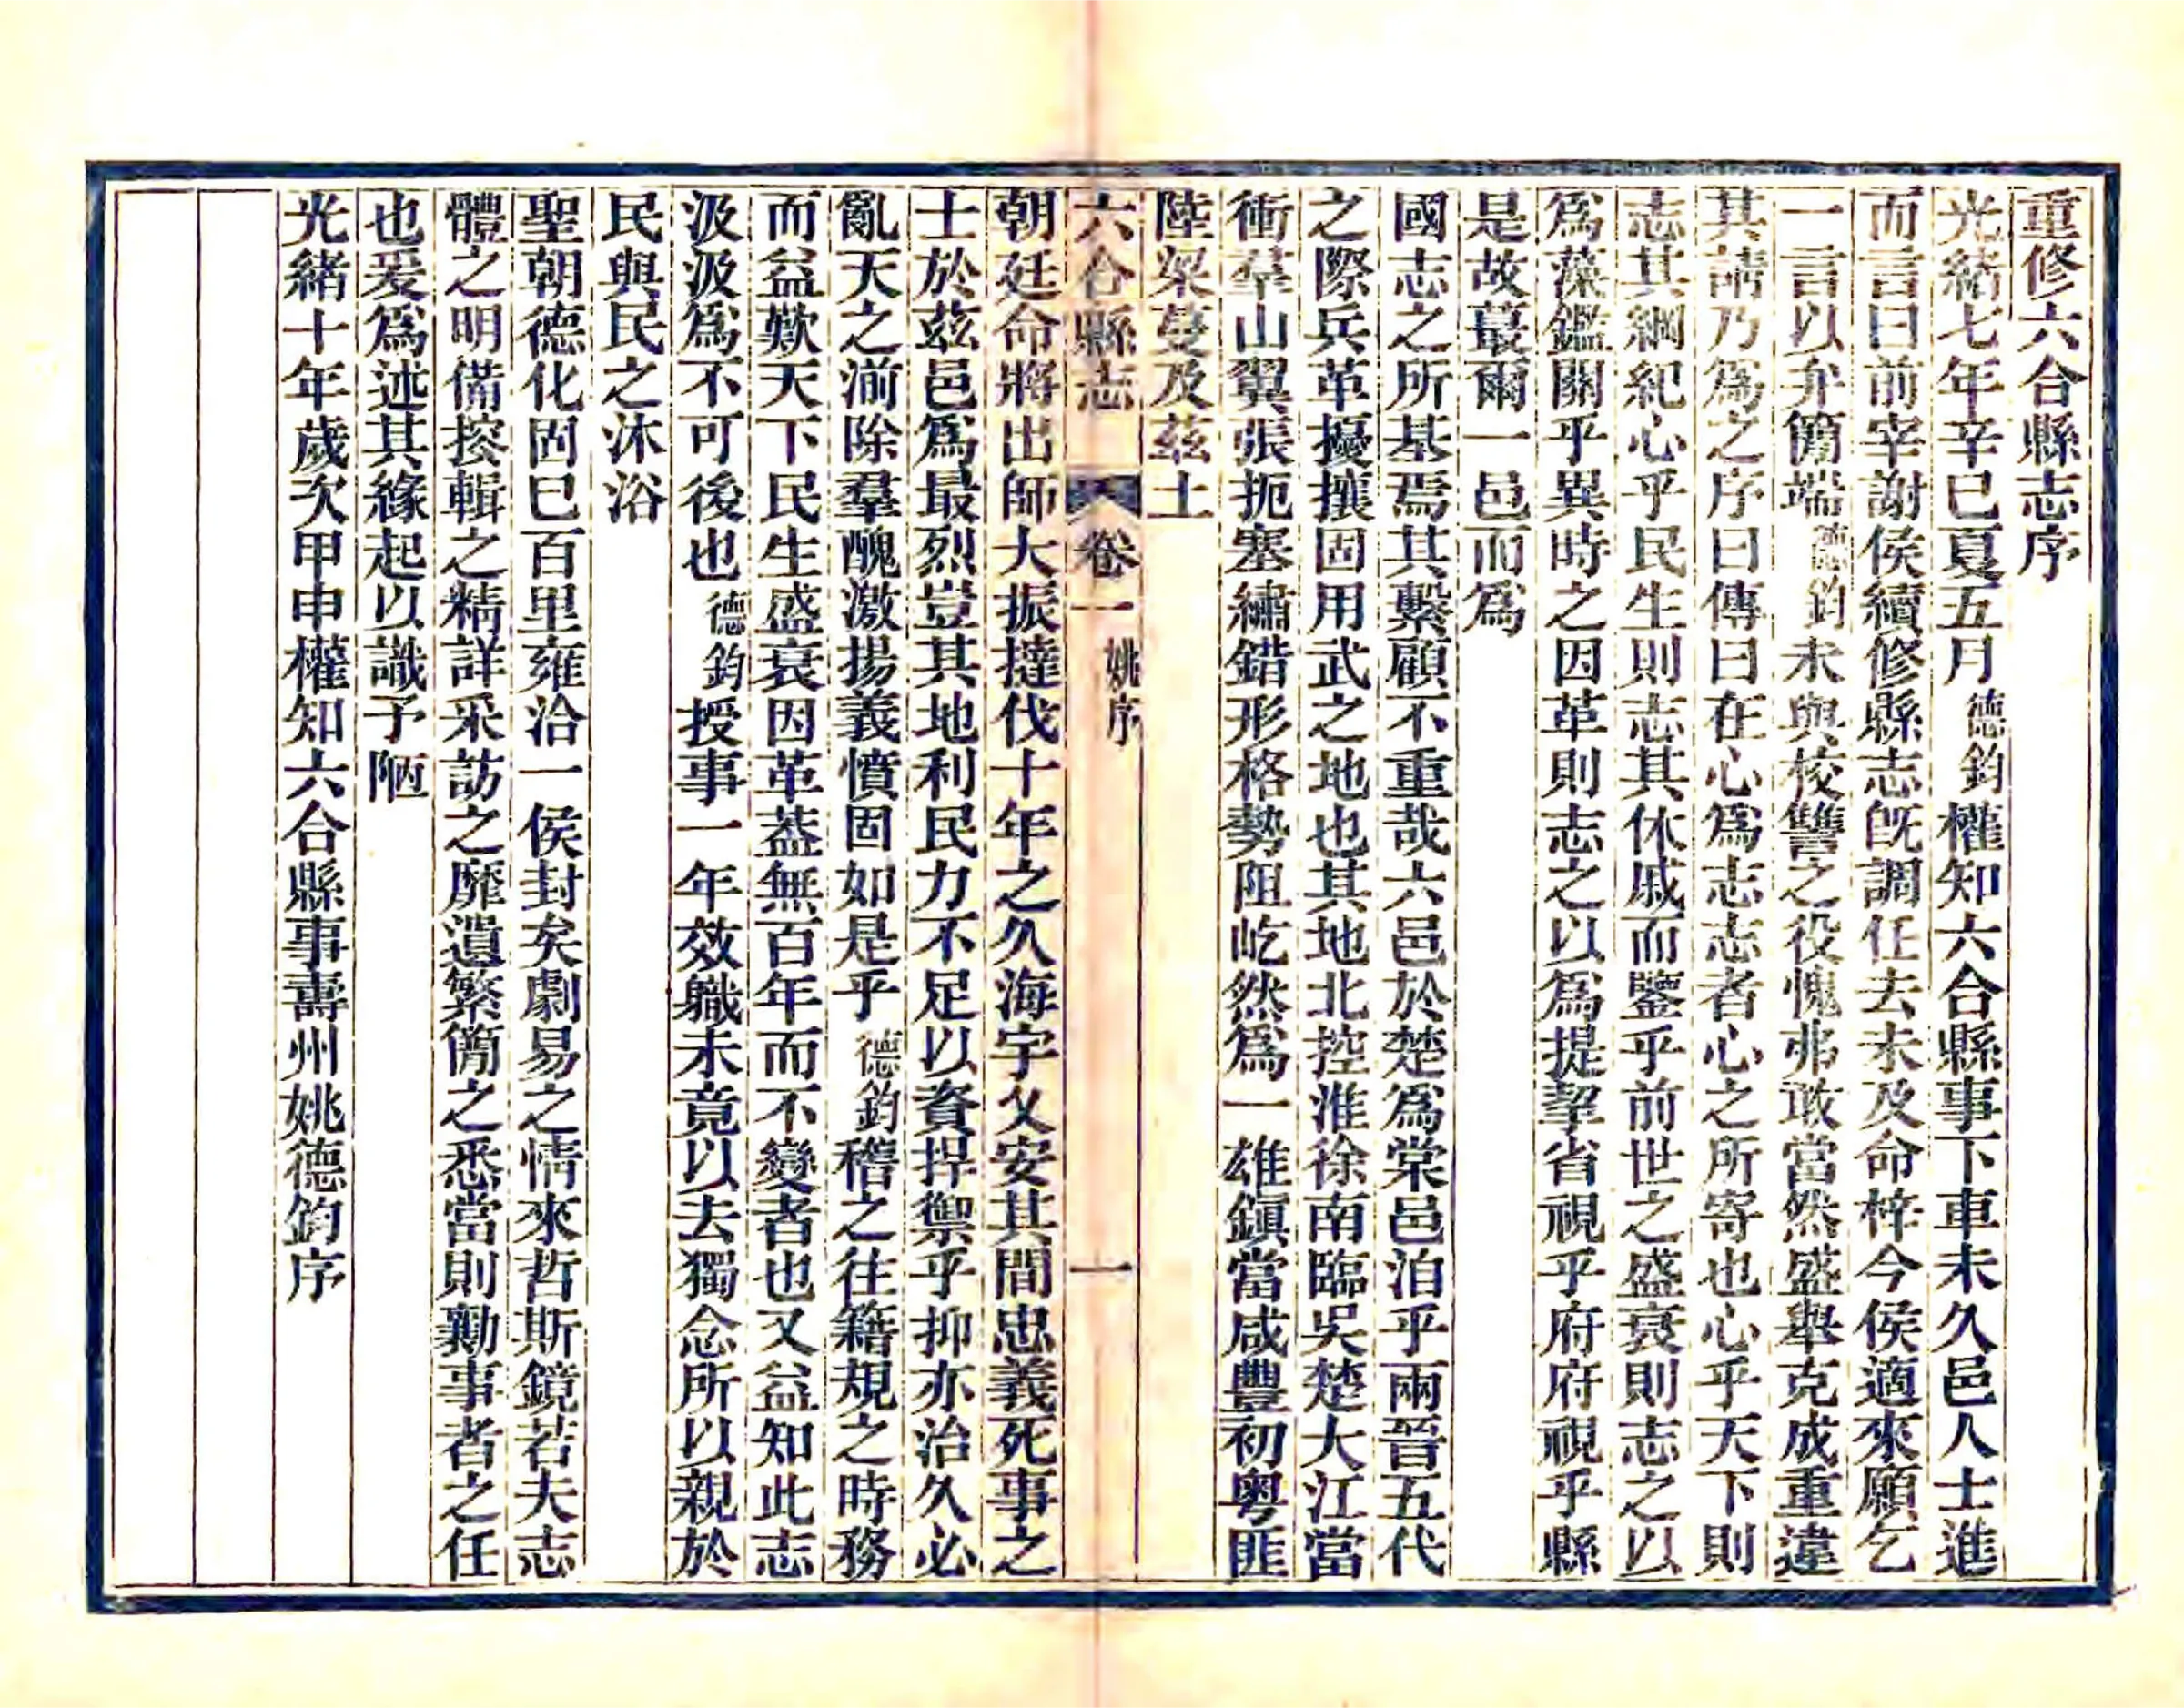 重修六合縣志序
光緒七年辛巳夏五月德鈞權知六合縣事下車未久邑人士進
而言曰前宰謝侯續修縣志旣調任去未及命梓今侯適來願乞
一言以弁簡端德鈞未與校讐之役愧弗敢當然盛舉克成重違
其請乃爲之序曰傳曰在心爲志志者心之所寄也心乎天下則
志其綱紀心乎民生則志其休戚而鑒乎前世之盛衰則志之以
爲藻鑑關乎異時之因革則志之以爲提挈省視乎府府視乎縣
是故蕞爾一邑而爲
國志之所基焉其繫顧不重哉六邑於楚爲棠邑洎乎兩晉五代
之際兵革擾攘固用武之地也其地北控淮徐南臨吳楚大江當
衝羣山翼張扼塞繡錯形格勢阻屹然爲一雄鎭當咸豐初粤匪
陸梁蔓及茲土
六合縣志 卷一 姚序 一
朝廷命將出師大振撻伐十年之久海宇乂安其間忠義死事之
士於茲邑爲最烈豈其地利民力不足以資捍禦乎抑亦治久必
亂天之湔除羣醜激揚義憤固如是乎德鈞稽之往籍規之時務
而益歎天下民生盛衰因革葢無百年而不變者也又益知此志
汲汲爲不可後也德鈞授事一年效職未竟以去獨念所以親於
民與民之沐浴
聖朝德化固已百里雍洽一侯封矣劇易之情來哲斯鏡若夫志
體之明備搲輯之精詳采訪之靡遺繁簡之悉當則勷事者之任
也爰爲述其緣起以識予陋
光緒十年歲次甲申權知六合縣事壽州姚德鈞序